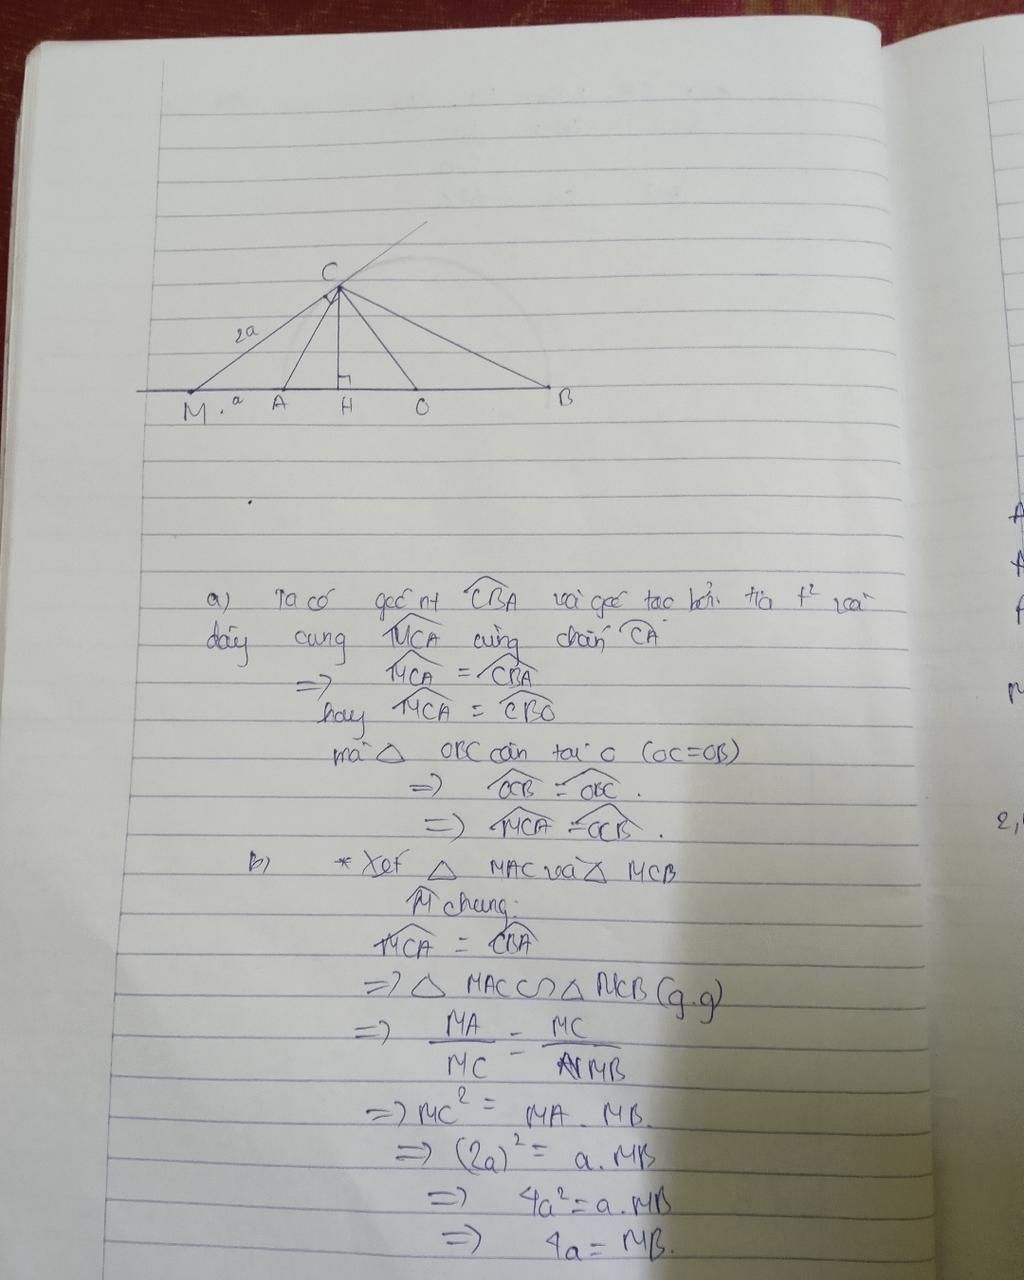 C
2a
M . a A H O B
a) Ta có góc nt CBA và góc tạo bởi tia t² và
dây cung MCA cùng chắn CA
=> MCA = CBA
hay MCA = CBO
mà △ OBC cân tại O (OC=OB)
=> OCB = OBC .
=> MCA = OCB .
b) * Xét △ MAC và △ MCB
M chung.
MCA = CBA
=> △ MAC ∽ △ MCB (g.g)
=> MA/MC = MC/MB
=> MC² = MA . MB.
=> (2a)² = a. MB
=> 4a² = a. MB
=> 4a = MB.
A
A
M
2,